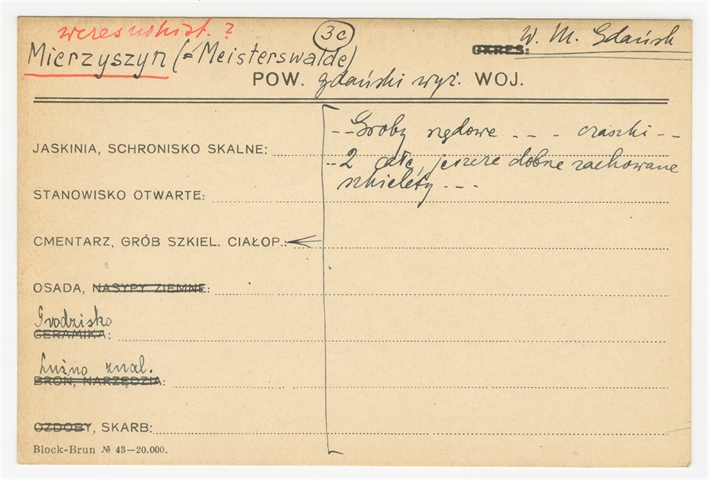 wczesnohist. ?
3c
W. M. Gdańsk
OKRES:
Mierzyszyn (= Meisterswalde)
POW. gdański wyż. WOJ.
-- Groby rzędowe -- - czaszki --
JASKINIA, SCHRONISKO SKALNE:
-- 2 całe, jeszcze dobrze zachowane
szkielety - --
STANOWISKO OTWARTE:
CMENTARZ, GRÓB SZKIEL. CIAŁOP.:
OSADA, NASYPY ZIEMNE:
Grodzisko
CERAMIKA:
Luźno znal.
BROŃ, NARZĘDZIA:
OZDOBY, SKARB:
Block-Brun № 43—20.000.